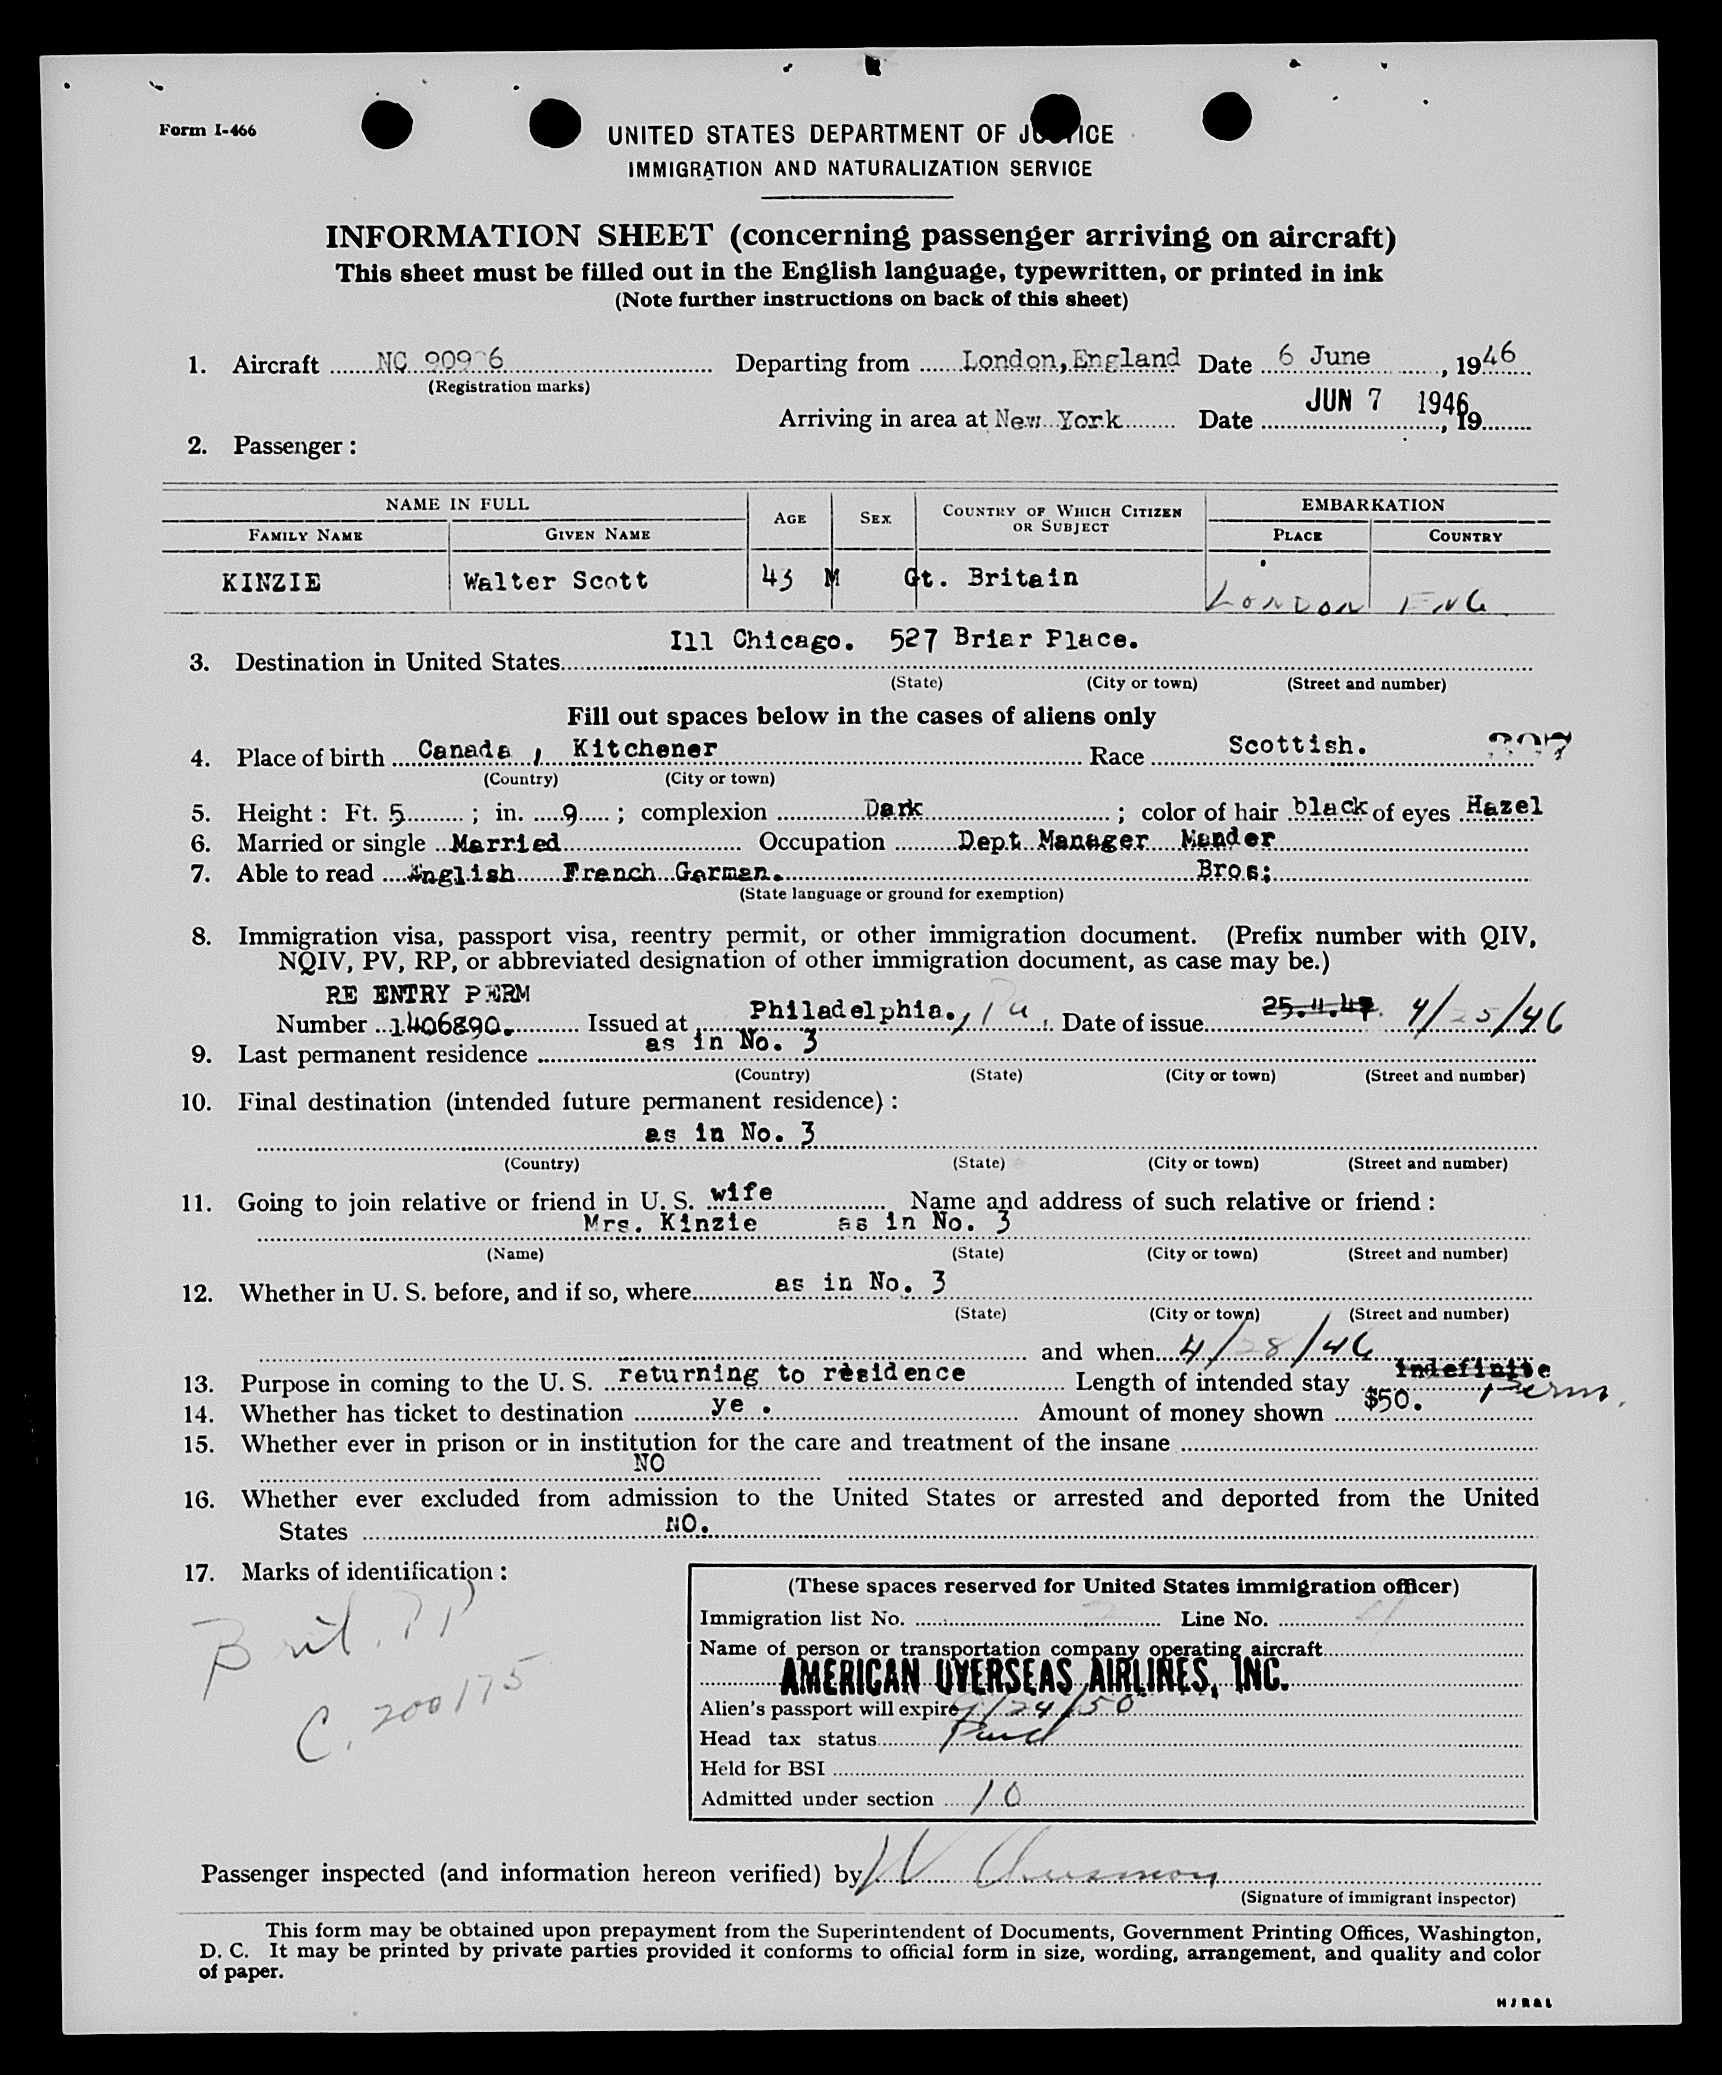 Form I-466
UNITED STATES DEPARTMENT OF JUSTICE
IMMIGRATION AND NATURALIZATION SERVICE
INFORMATION SHEET (concerning passenger arriving on aircraft)
This sheet must be filled out in the English language, typewritten, or printed in ink
(Note further instructions on back of this sheet)
1. Aircraft NC Departing from London, England Date 6 June, 1946
(Registration marks)
Arriving in area at New York Date JUN 7 1946, 19
2. Passenger:
NAME IN FULL AGE SEX COUNTRY OF WHICH CITIZEN OR SUBJECT EMBARKATION
FAMILY NAME GIVEN NAME PLACE COUNTRY
KINZIE Walter Scott 43 M Gt. Britain LONDON ENG
Ill Chicago. 527 Briar Place.
3. Destination in United States
(State) (City or town) (Street and number)
Fill out spaces below in the cases of aliens only
4. Place of birth Canada, Kitchener Race Scottish.
(Country) (City or town)
5. Height: Ft. 5; in. 9; complexion Dark; color of hair black of eyes Hazel
6. Married or single Married Occupation Dept Manager Mander
7. Able to read English French German. Bros;
(State language or ground for exemption)
8. Immigration visa, passport visa, reentry permit, or other immigration document. (Prefix number with QIV,
NQIV, PV, RP, or abbreviated designation of other immigration document, as case may be.)
RE ENTRY PERM
Number 1406890. Issued at Philadelphia., Pa. Date of issue 4/25/46
9. Last permanent residence as in No. 3
(Country) (State) (City or town) (Street and number)
10. Final destination (intended future permanent residence):
as in No. 3
(Country) (State) (City or town) (Street and number)
11. Going to join relative or friend in U. S. wife Name and address of such relative or friend:
Mrs. Kinzie as in No. 3
(Name) (State) (City or town) (Street and number)
12. Whether in U. S. before, and if so, where as in No. 3
(State) (City or town) (Street and number)
and when 4/28/46
13. Purpose in coming to the U. S. returning to residence Length of intended stay indefinite Perm.
14. Whether has ticket to destination ye . Amount of money shown $50.
15. Whether ever in prison or in institution for the care and treatment of the insane
NO
16. Whether ever excluded from admission to the United States or arrested and deported from the United
States NO.
17. Marks of identification:
Brit. PP
C. 200175
(These spaces reserved for United States immigration officer)
Immigration list No. 2 Line No.
Name of person or transportation company operating aircraft
AMERICAN OVERSEAS AIRLINES, INC.
Alien's passport will expire 9/24/50
Head tax status Paid
Held for BSI
Admitted under section 10
Passenger inspected (and information hereon verified) by
(Signature of immigrant inspector)
This form may be obtained upon prepayment from the Superintendent of Documents, Government Printing Offices, Washington,
D. C. It may be printed by private parties provided it conforms to official form in size, wording, arrangement, and quality and color
of paper.